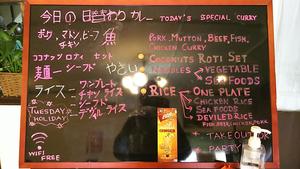 今日の日替わりカレー TODAY'S SPECIAL CURRY
ポーク、マトン、ビーフ 魚
チキン
PORK, MUTTON, BEEF, FISH,
CHICKEN CURRY
ココナッツ ロティ セット
COCONUTS ROTI SET
麺 シーフード やさい
NOODLES VEGETABLE
SEA FOODS
ライス ワンプレート
チキン ライス
シーフード
デビル ライス
RICE ONE PLATE
CHICKEN RICE
SEA FOODS
DEVILED RICE
FISH, BEEF, CHICKEN, PORK
TUESDAY
HOLIDAY
+ TAKEOUT
+ PARTY
WIFI
FREE